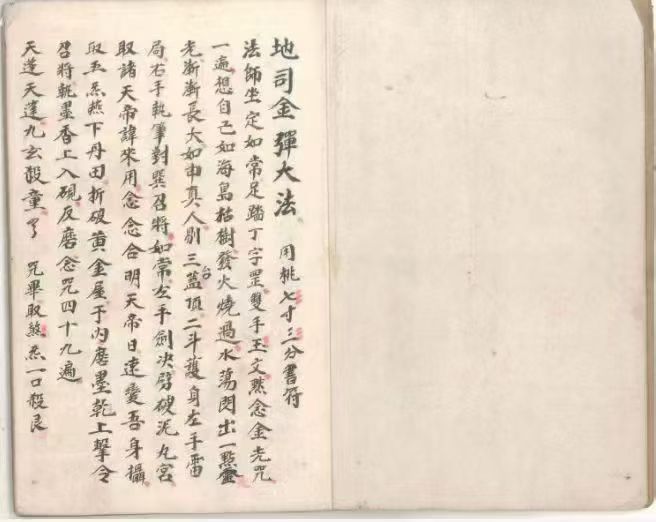 地司金彈大法 用桃七寸三分書符
法師坐定如常足踏丁字罡雙手玉文默念金光咒
一遍想自己如海島枯樹發火燒過水蕩閃出一點金
光漸漸長大如申真人剔三台蓋頂二斗護身左手雷
局右手執筆對巽召將如常左手劍决劈破泥丸宮
取諸天帝諱來用念念合明天帝日速變吾身攝
取五炁燕下丹田折破黃金屋于內磨墨乾上擊令
召將執墨香上入硯反磨念咒四十九遍
天蓬天蓬九玄殺童了 咒畢取煞炁一口殺良